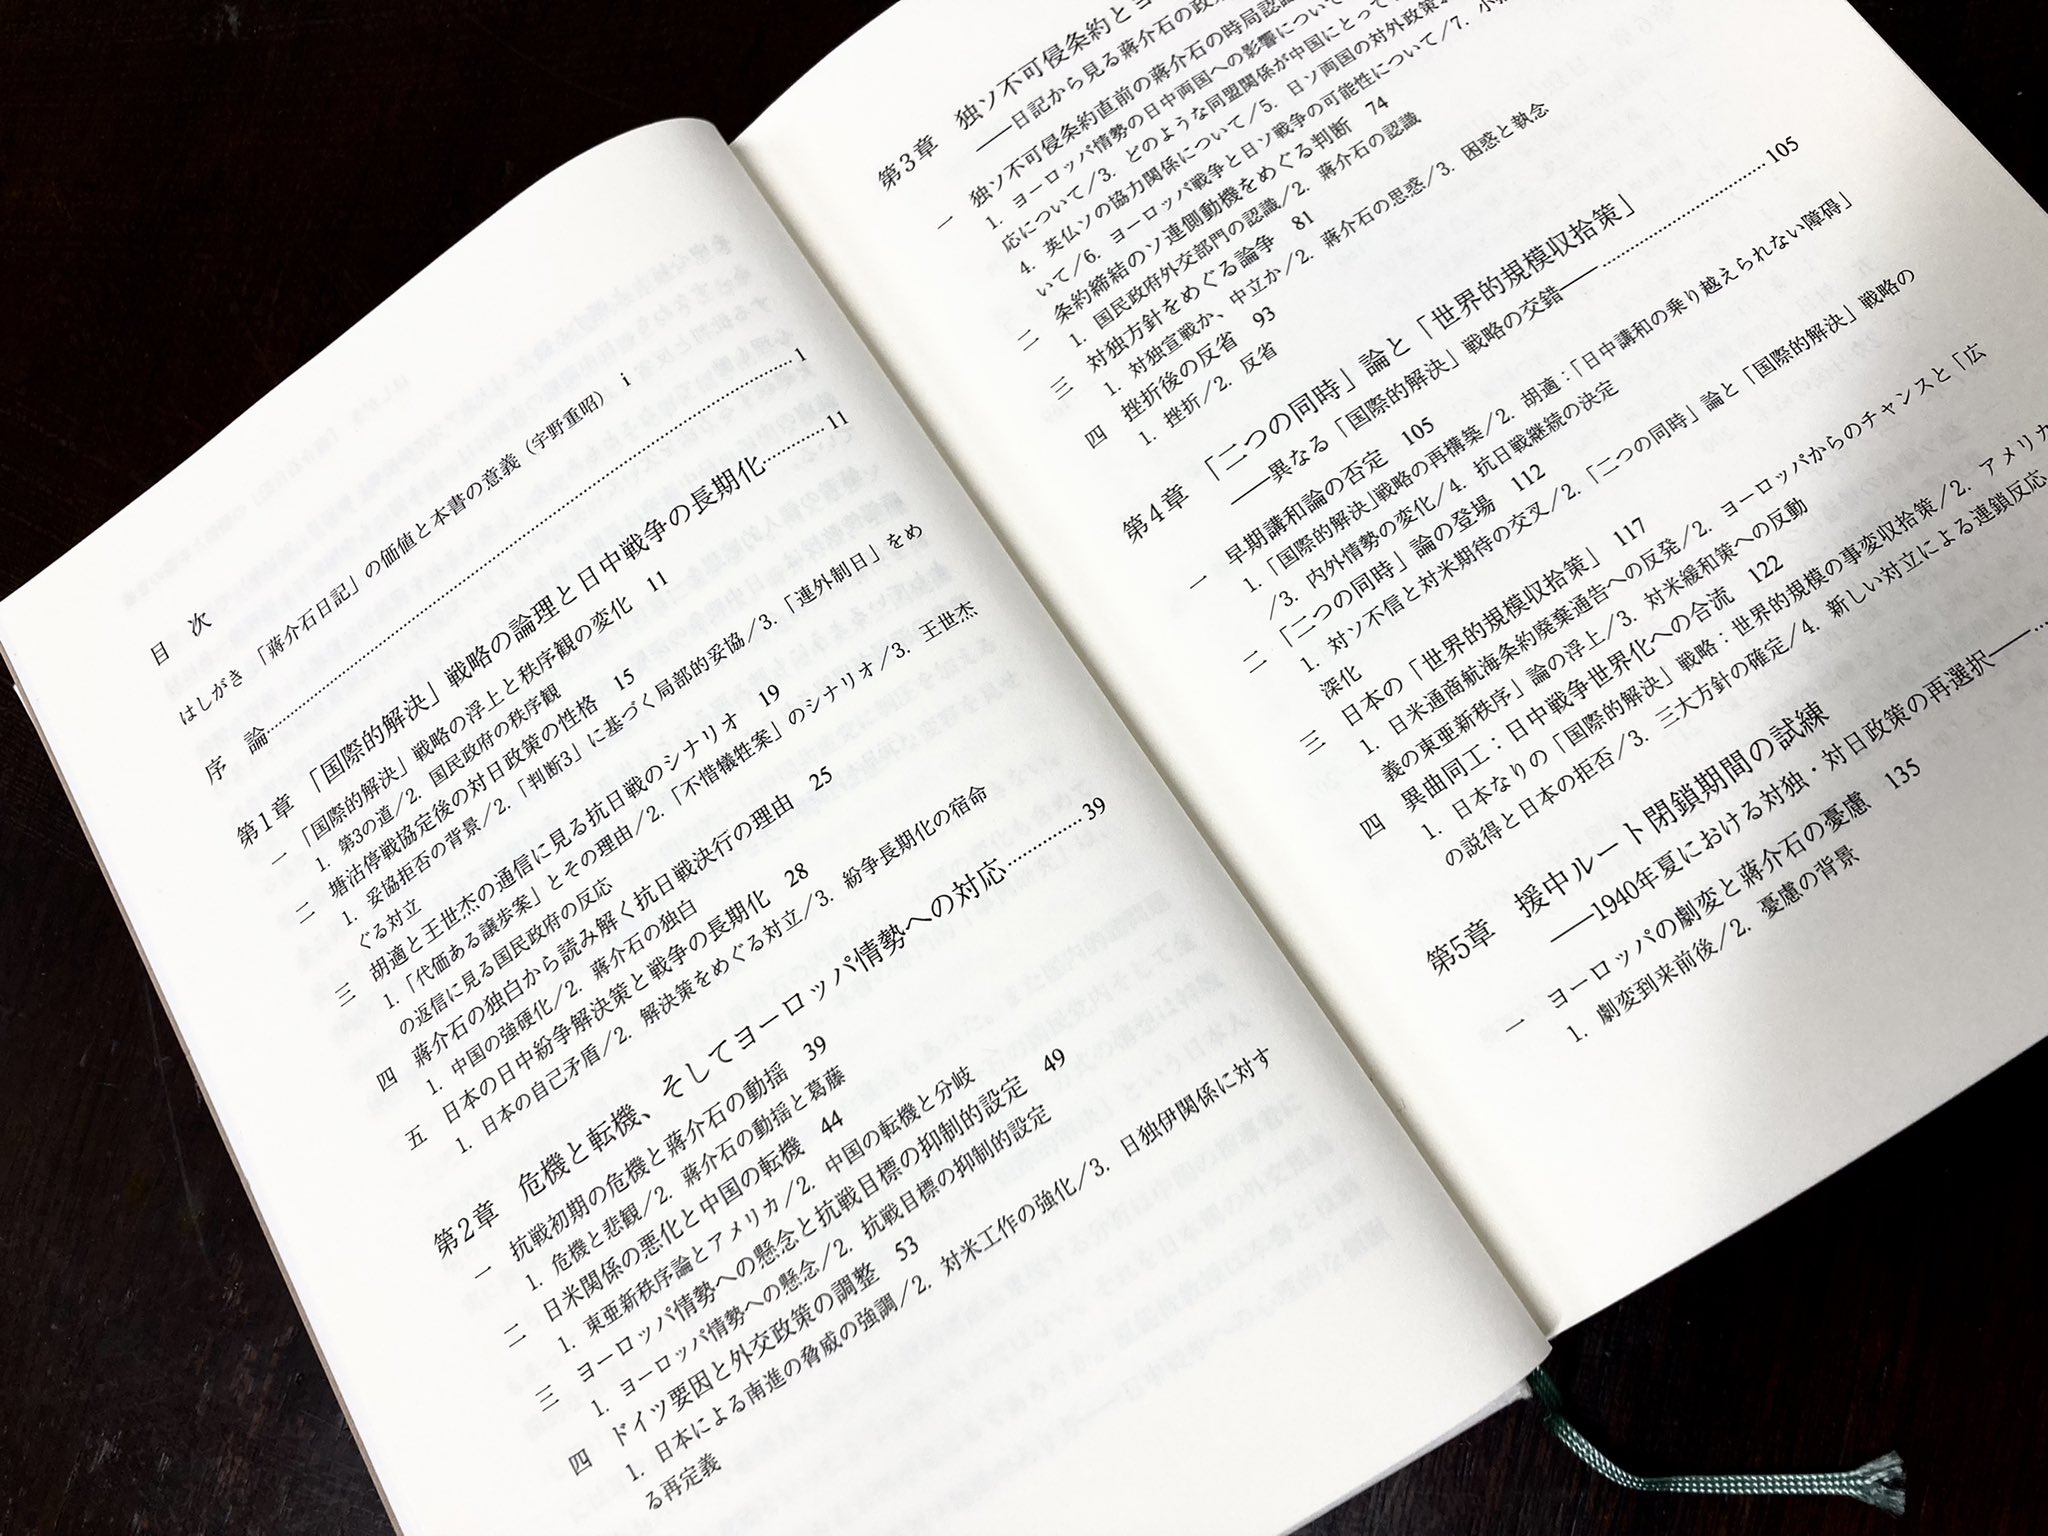 目　次
はしがき　「蔣介石日記」の価値と本書の意義（宇野重昭）　i
序　論……1
第1章　「国際的解決」戦略の論理と日中戦争の長期化……11
一　「国際的解決」戦略の浮上と秩序観の変化　11
1. 第3の道／2. 国民政府の秩序観
二　塘沽停戦協定後の対日政策の性格　15
1. 妥協拒否の背景／2.「判断3」に基づく局部的妥協／3.「連外制日」をめ
ぐる対立
三　胡適と王世杰の通信に見る抗日戦のシナリオ　19
1.「代価ある譲歩案」とその理由／2.「不惜犠牲案」のシナリオ／3. 王世杰
の返信に見る国民政府の反応
四　蔣介石の独白から読み解く抗日戦決行の理由　25
1. 中国の強硬化／2. 蔣介石の独白
五　日本の日中紛争解決策と戦争の長期化　28
1. 日本の自己矛盾／2. 解決策をめぐる対立／3. 紛争長期化の宿命
第2章　危機と転機、そしてヨーロッパ情勢への対応……39
一　抗戦初期の危機と蔣介石の動揺　39
1. 危機と悲観／2. 蔣介石の動揺と葛藤
二　日米関係の悪化と中国の転機　44
1. 東亜新秩序論とアメリカ／2. 中国の転機と分岐
三　ヨーロッパ情勢への懸念と抗戦目標の抑制的設定　49
1. ヨーロッパ情勢への懸念／2. 抗戦目標の抑制的設定
四　ドイツ要因と外交政策の調整　53
1. 日本による南進の脅威の強調／2. 対米工作の強化／3. 日独伊関係に対す
る再定義
第3章　独ソ不可侵条約とヨ
――日記から見る蔣介石の政
一　独ソ不可侵条約直前の蔣介石の時局認識
1. ヨーロッパ情勢の日中両国への影響について
応について／3. どのような同盟関係が中国にとって
4. 英仏ソの協力関係について／5. 日ソ両国の対外政策
いて／6. ヨーロッパ戦争と日ソ戦争の可能性について／7.
二　条約締結のソ連側動機をめぐる判断　74
1. 国民政府外交部門の認識／2. 蔣介石の認識
三　対独方針をめぐる論争　81
1. 対独宣戦か、中立か／2. 蔣介石の思惑／3. 困惑と執念
四　挫折後の反省　93
1. 挫折／2. 反省
第4章　「二つの同時」論と「世界的規模収拾策」
――異なる「国際的解決」戦略の交錯――……105
一　早期講和論の否定　105
1.「国際的解決」戦略の再構築／2. 胡適：「日中講和の乗り越えられない障碍」
／3. 内外情勢の変化／4. 抗日戦継続の決定
二　「二つの同時」論の登場　112
1. 対ソ不信と対米期待の交叉／2.「二つの同時」論と「国際的解決」戦略の
深化
三　日本の「世界的規模収拾策」　117
1. 日米通商航海条約廃棄通告への反発／2. ヨーロッパからのチャンスと「広
義の東亜新秩序」論の浮上／3. 対米緩和策への反動
四　異曲同工：日中戦争世界化への合流　122
1. 日本なりの「国際的解決」戦略：世界的規模の事変収拾策／2. アメリカ
の説得と日本の拒否／3. 三大方針の確定／4. 新しい対立による連鎖反応
第5章　援中ルート閉鎖期間の試練
――1940年夏における対独・対日政策の再選択――
一　ヨーロッパの劇変と蔣介石の憂慮　135
1. 劇変到来前後／2. 憂慮の背景